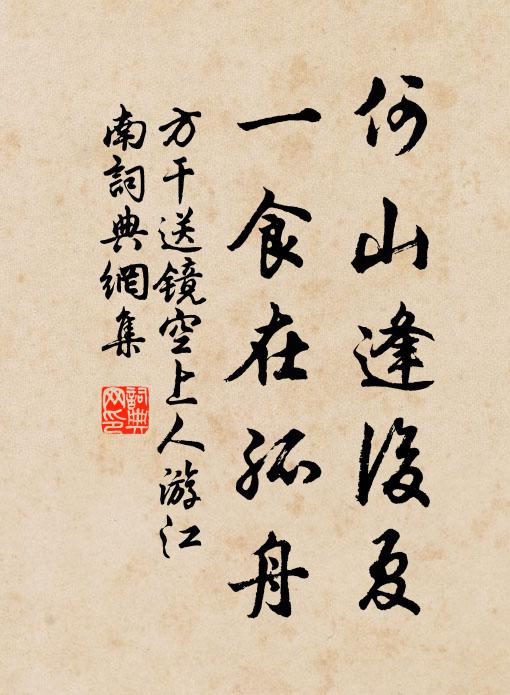 何山逢後夏
一食在孤舟
方干送鏡空上人游江
南詞典網集
詞典
网印